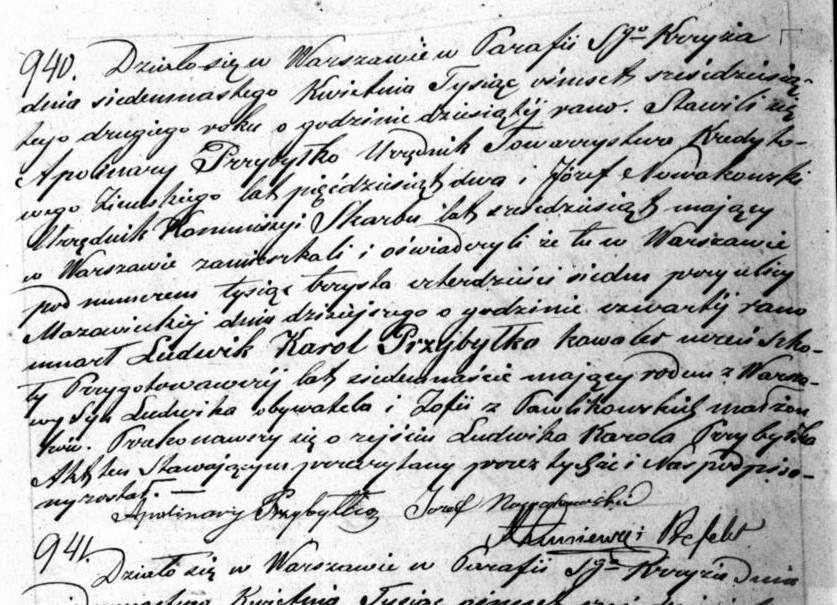 940. Działo się w Warszawie w Parafii Sgo Krzyża
dnia siedemnastego Kwietnia Tysiąc ośmset sześćdziesią-
tego drugiego roku o godzinie dziesiątéj rano. Stawili się
Apolinary Przybytko Urzędnik Towarzystwa Kredyto-
wego Ziemskiego lat pięćdziesiąt dwa i Józef Nowakowski
Urzędnik Kommissyi Skarbu lat sześćdziesiąt mający
w Warszawie zamieszkali i oświadczyli że tu w Warszawie
pod numerem tysiąc trzysta czterdzieści siedm przy ulicy
Mazowieckiéj dnia dzisiejszego o godzinie czwartéj rano
umarł Ludwik Karol Przybytko kawaler uczeń szko-
ły Przygotowawczéj lat siedemnaście mający rodem z Warsza-
wy syn Ludwika obywatela i Zofii z Pawlikowskich małżon
ków. Przekonawszy się o zejściu Ludwika Karola Przybytka
Akt ten Stawającym przeczytany przez tychże i Nas podpisa-
ny został. —
Apolinary Przybytko Józef Nowakowski
941. Działo się w Warszawie w Parafii Sgo Krzyża dnia
Kwietnia Tysiąc